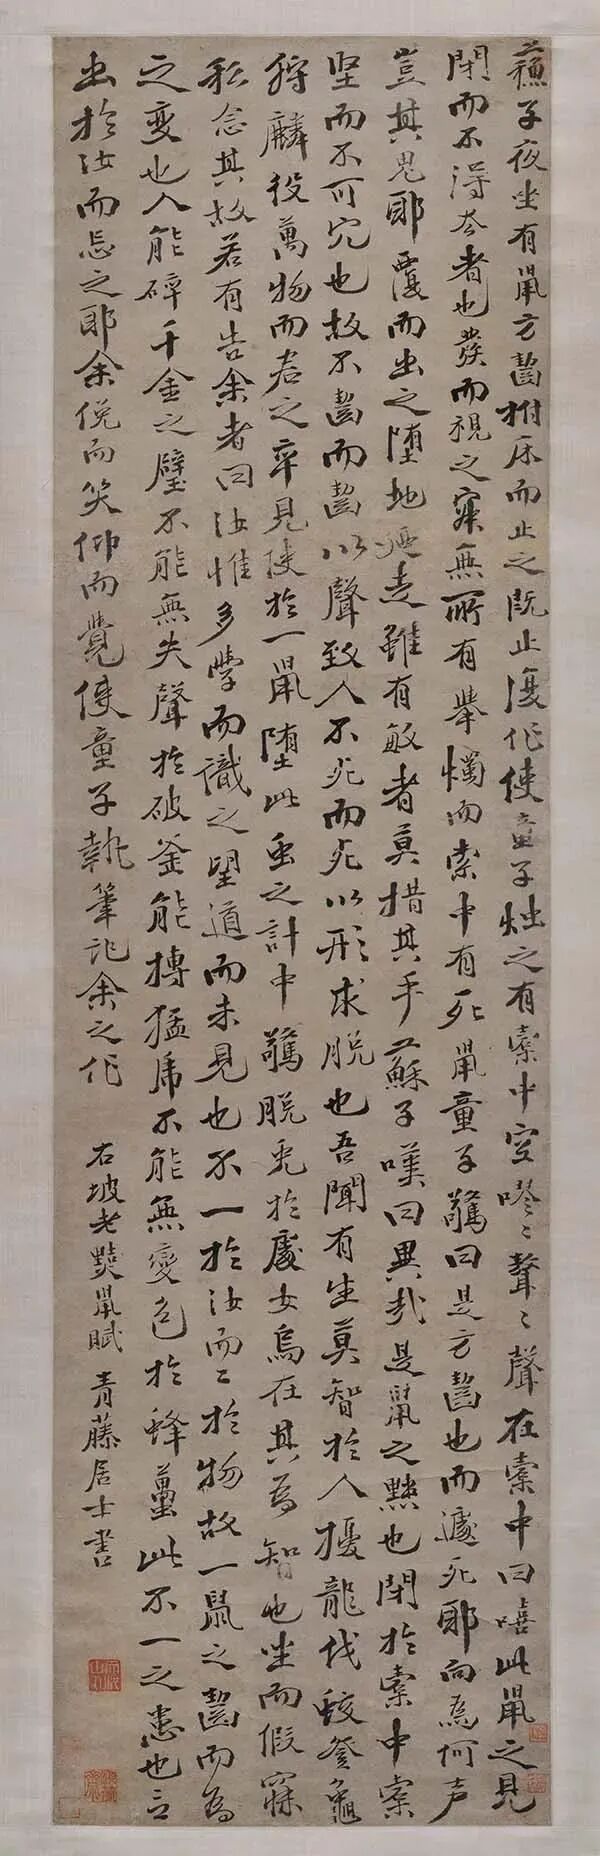 蘇子夜坐有鼠方齧拊床而止之既止復作使童子燭之有橐中空嘐〻聱〻聲在橐中曰嘻此鼠之見
閉而不得去者也發而視之寂無所有舉燭而索中有死鼠童子驚曰是方齧也而遽死耶向為何声
豈其鬼耶覆而出之墮地廼走雖有敏者莫措其手蘇子嘆曰異哉是鼠之黠也閉於橐中橐
堅而不可穴也故不齧而齧以聲致人不死而死以形求脫也吾聞有生莫智於人擾龍伐蛟登龜
狩麟役萬物而君之卒見使於一鼠墮此虫之計中驚脫兔於處女烏在其為智也坐而假寐
私念其故若有告余者曰汝惟多學而識之望道而未見也不一於汝而二於物故一鼠之齧而為
之變也人能碎千金之璧不能無失聲於破釜能搏猛虎不能無變色於蜂蠆此不一之患也言
出於汝而忘之耶余俛而笑仰而覺使童子執筆記余之作
右坡老黠鼠賦 青藤居士書